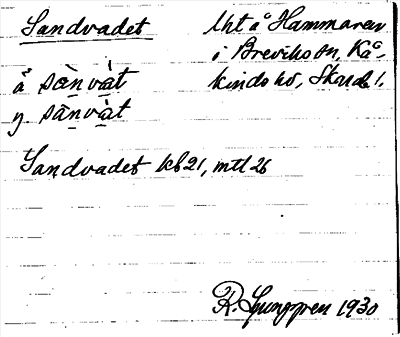 Sandvadet
lht å Hammaren
i Breviks sn, Kå-
kinds hd, Skarab l.
å sànvàt
y. sânvàt
Sandvadet kb 21, mtl 26
R. Ljunggren 1930